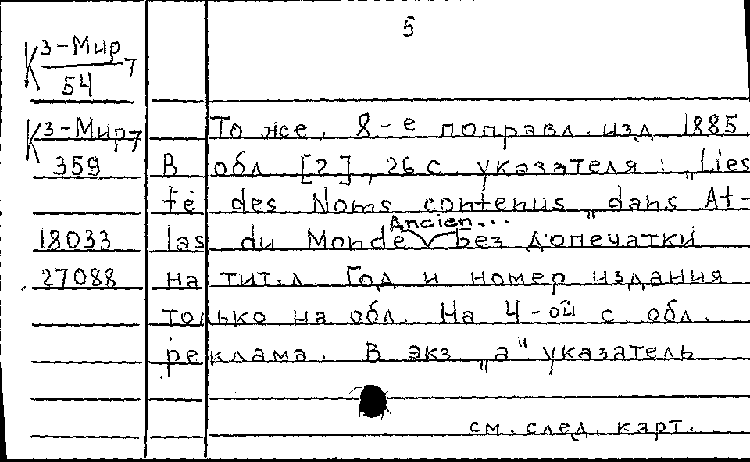 5
К 3-Мир 7
54
К 3-Мир 7 То же. 8-е поправл. изд 1885
359 В обл [2], 26 с. указателя: „Lies
te des Noms contenus „dans At-
Ancien...
18033 las du Monde без допечатки
27088 на тит. л Год и номер издания
только на обл. На 4-ой с обл.
реклама. В экз „а" указатель
см. след. карт.